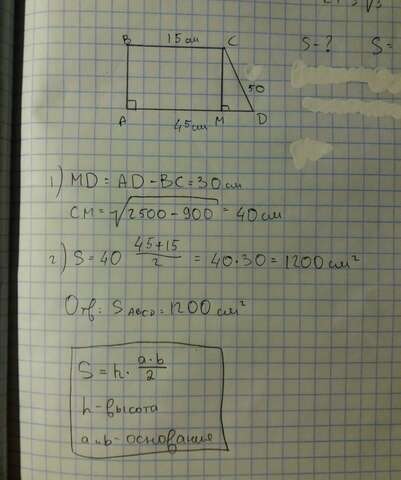 S-?
S=
B 15 см C
50
A 45см M D
1) MD = AD - BC = 30 см
CM = √2500 - 900 = 40 см
2) S = 40 45+15/2 = 40·30 = 1200 см²
Отв: S ABCD = 1200 см²
S = h · a·b/2
h-высота
a и b - основания